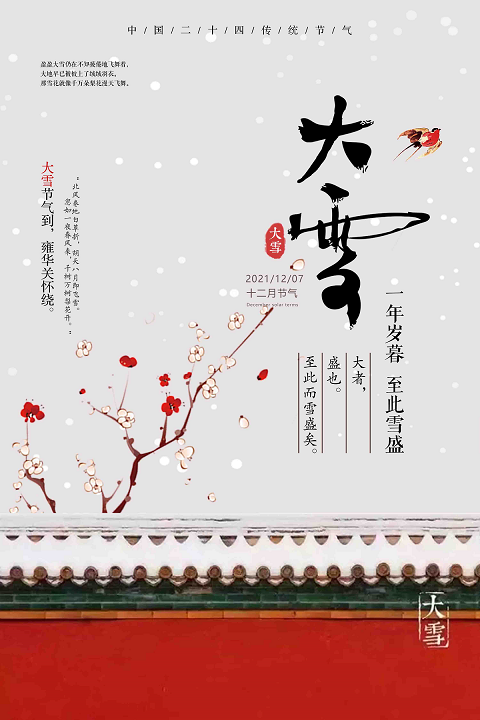 中/国/二/十/四/传/统/节/气
盈盈大雪仍在不知疲倦地飞舞着，
大地早已披蚊上了绒绒羽衣，
那雪花就像千万朵梨花漫天飞舞。
大雪
大雪
2021/12/07
十二月节气
December solar terms
一年岁暮 至此雪盛
大者，
盛也。
至此而雪盛矣。
大雪节气到，雍华关怀绕。
“北风卷地白草折，胡天八月即飞雪。
忽如一夜春风来，千树万树梨花开。”
大雪